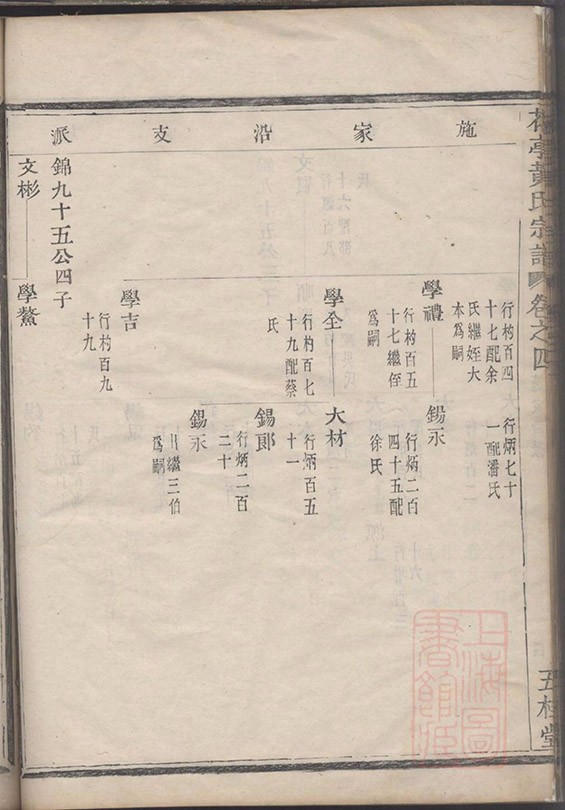 黃氏宗譜
卷之四
施家沿支派
行杓百四
十七配余
氏繼姪大
本為嗣
行炳七十
一配潘氏
學禮
行杓百五
十七繼侄
為嗣
錫示
行炳二百
四十五配
徐氏
學全
行杓百七
十九配蔡
氏
大材
行炳百五
十一
錫郎
行炳二百
二十
錫示
出繼三伯
為嗣
學吉
行杓百九
十九
錦九十五公四子
文彬
學鰲
上海圖書館藏